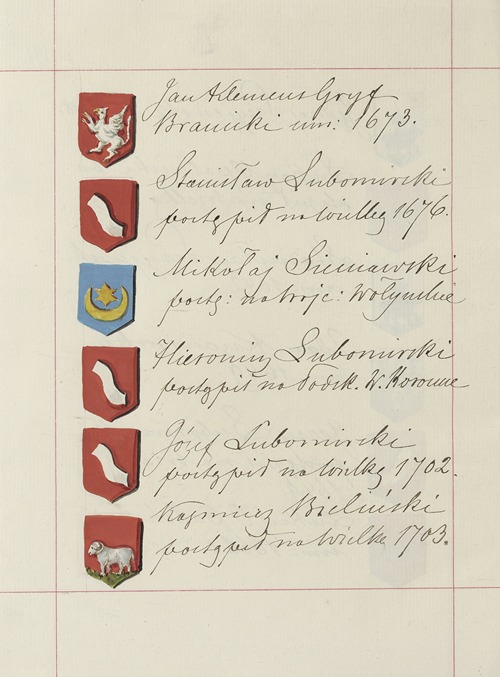 Jan Klemens Gryf
Branicki um: 1673.
Stanisław Lubomirski
postąpił na Wielką 1676.
Mikołaj Sieniawski
postą: na woje: Wołyńskie
Hieronim Lubomirski
postąpił na Podsk. W. Koronne
Józef Lubomirski
postąpił na Wielką 1702.
Kazmierz Bieliński
postąpił na Wielką 1703.